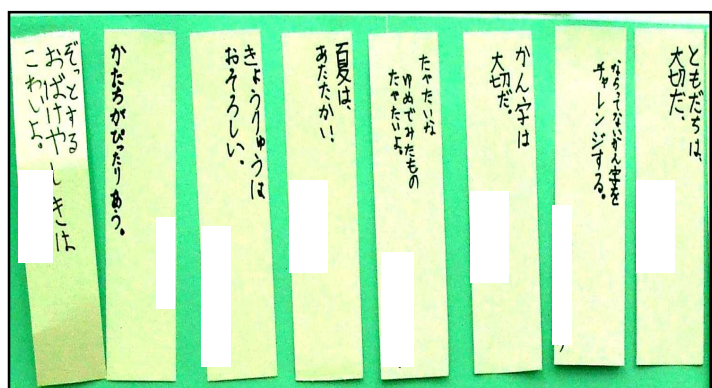 ともだちは、
大切だ。
ならってないかん字を
チャレンジする。
かん字は
大切だ。
たべたいな
ゆめでみたもの
たべたいよ。
夏は、
あたたかい!
きょうりゅうは
おそろしい。
かたちがぴったりあう。
ぞっとする
おばけやしきは
こわいよ。